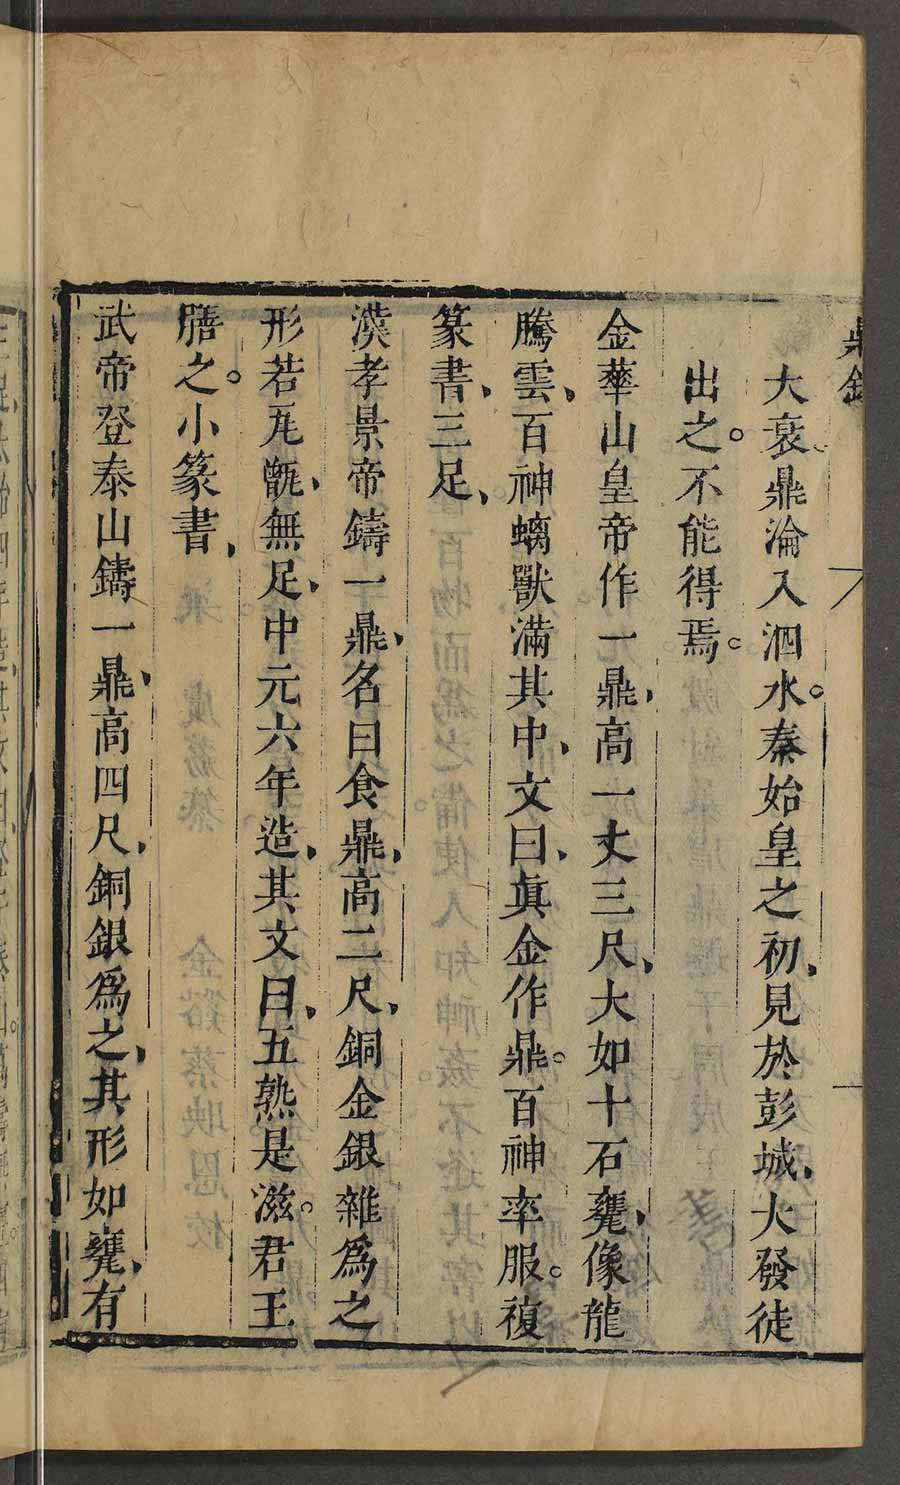 鼎錄
大衰、鼎淪入泗水。秦始皇之初、見於彭城、大發徒
出之。不能得焉。
金華山皇帝作一鼎、高一丈三尺、大如十石甕、像龍
騰雲、百神螭獸滿其中、文曰、眞金作鼎。百神率服。複
篆書、三足、
漢孝景帝鑄一鼎、名曰食鼎、高二尺、銅金銀雜爲之
形若瓦甑、無足、中元六年造、其文曰、五熟是滋。君王
膳之。小篆書、
武帝登泰山鑄一鼎、高四尺、銅銀爲之、其形如甕、有